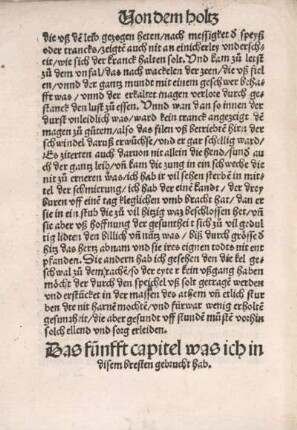 Von dem holtz
die vß dē leib gezogen heten/nach messigket d' speyß
oder trancks/zeigtē auch nit an einicherley vnderscheit/
eit/wie sich der kranck halten solt. Vnd kam zů letst
zů dem vnfal/das nach wackelen der zeen/die vß fielen/
en/vnnd der gantz mundt mit einem geschwer behafft
fft was/vnnd der erkaltet magen verlore durch gestanck
stanck den lust zů essen. Vnnd wan dan so innen der
durst vnleidlich was/ward kein tranck angezeigt dē
magen zů gůtem/also das filen vß betriebtē hirn der
schwindel daruß erwůchse/vnd er gar schellig ward/
Es ziterten auch daruon nit allein die hend/sund' auch
ch der gantz leib/vñ kam die zung in ein schweche die
nit zů ernerē was/ich hab ir vil sehen sterbē in mittel
tel der schmierung/ich hab der einē kandt/der drey
buren vff eine tag kleglichen vmb bracht hat/dan er
sie in ein stub die zů vil hitzig waz beschlossen het/vñ
sie aber vß hoffnung der gesuntheit sich zů vil gedultig
tig lidten den billich vñ nütz was/biß durch grösse d'
hitz das hertz abnam vnd sie ires eignen todts nit entpfanden.
pfanden. Die andern hab ich gesehen den die kel geschwal
schwal zů dem rachē/so der eyter kein vßgang haben
möcht der durch den speichel vß solt getragē werden
vnd ersticket in der massen des athem vñ etlich sturben
ben die nit harnē mochtē/vnd fürwar wenig erholtē
gesuntheit/die aber gesundt vff stundē müstē vorhin
solch ellend vnd sorg erleiden.
Das fünfft capitel was ich in
disem bresten gebrucht hab.